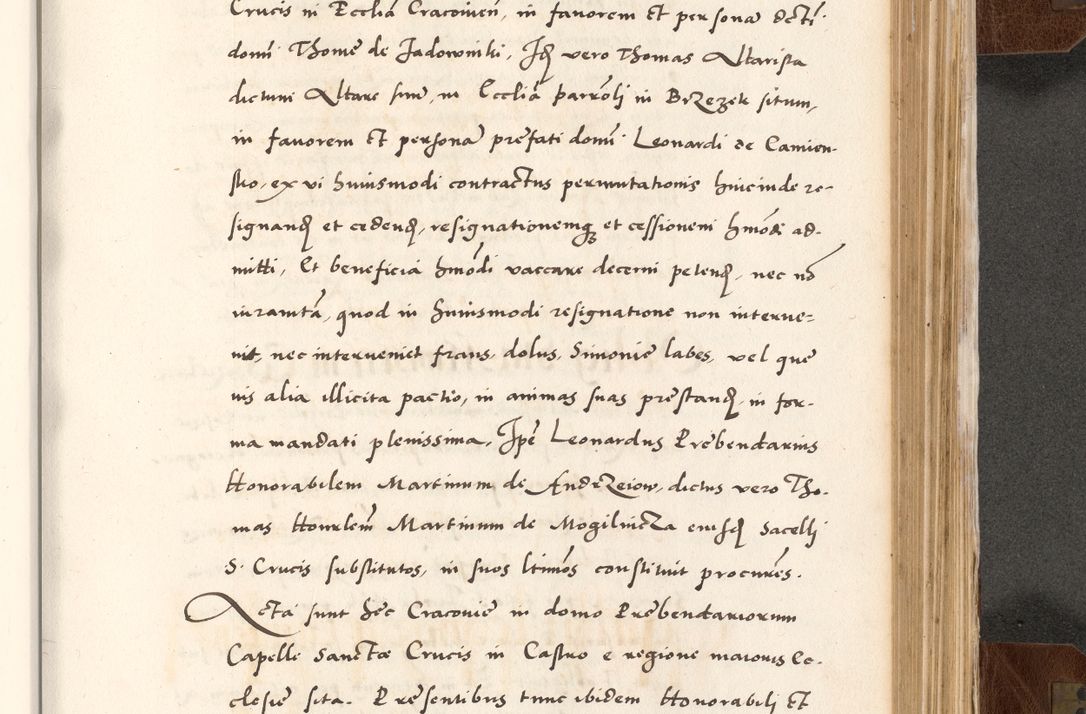 Crucis in Ecclia Cracouien, in fauorem et persona dcti
domi Thome de Jadowniki, Iħ vero Thomas Altarista
dictum Altare sive, in Ecclia parroli in Brzezek situm,
in fauorem et persona prefati domi Leonardi de Camien-
sko, ex vi huiusmodi contractus permutationis hincinde re-
signand et cedend, resignationemq et cessionem hmodi ad-
mitti, Et beneficia hmodi vaccare decerni petend, nec no
iuramta, quod in huiusmodi resignatione non interue=
nit, nec interueniet fraus, dolus, Simonie labes, vel que
uis alia illicita pactio, in animas suas prestand, in for-
ma mandati plenissima, Ipe Leonardus Prebendarius
Honorabilem Martinum de Andrzeiow, dictus vero Tho-
mas Honrlem Martinum de Mogilnicza eiusd Sacelli
S. Crucis substitutos, in suos ltimos constituit procures.
Acta sunt hec Cracouie in domo Prebendariorum
Capelle Sanctae Crucis in Castro e regione maioris Ec-
clesie sita. Presentibus tunc ibidem Honorabili et